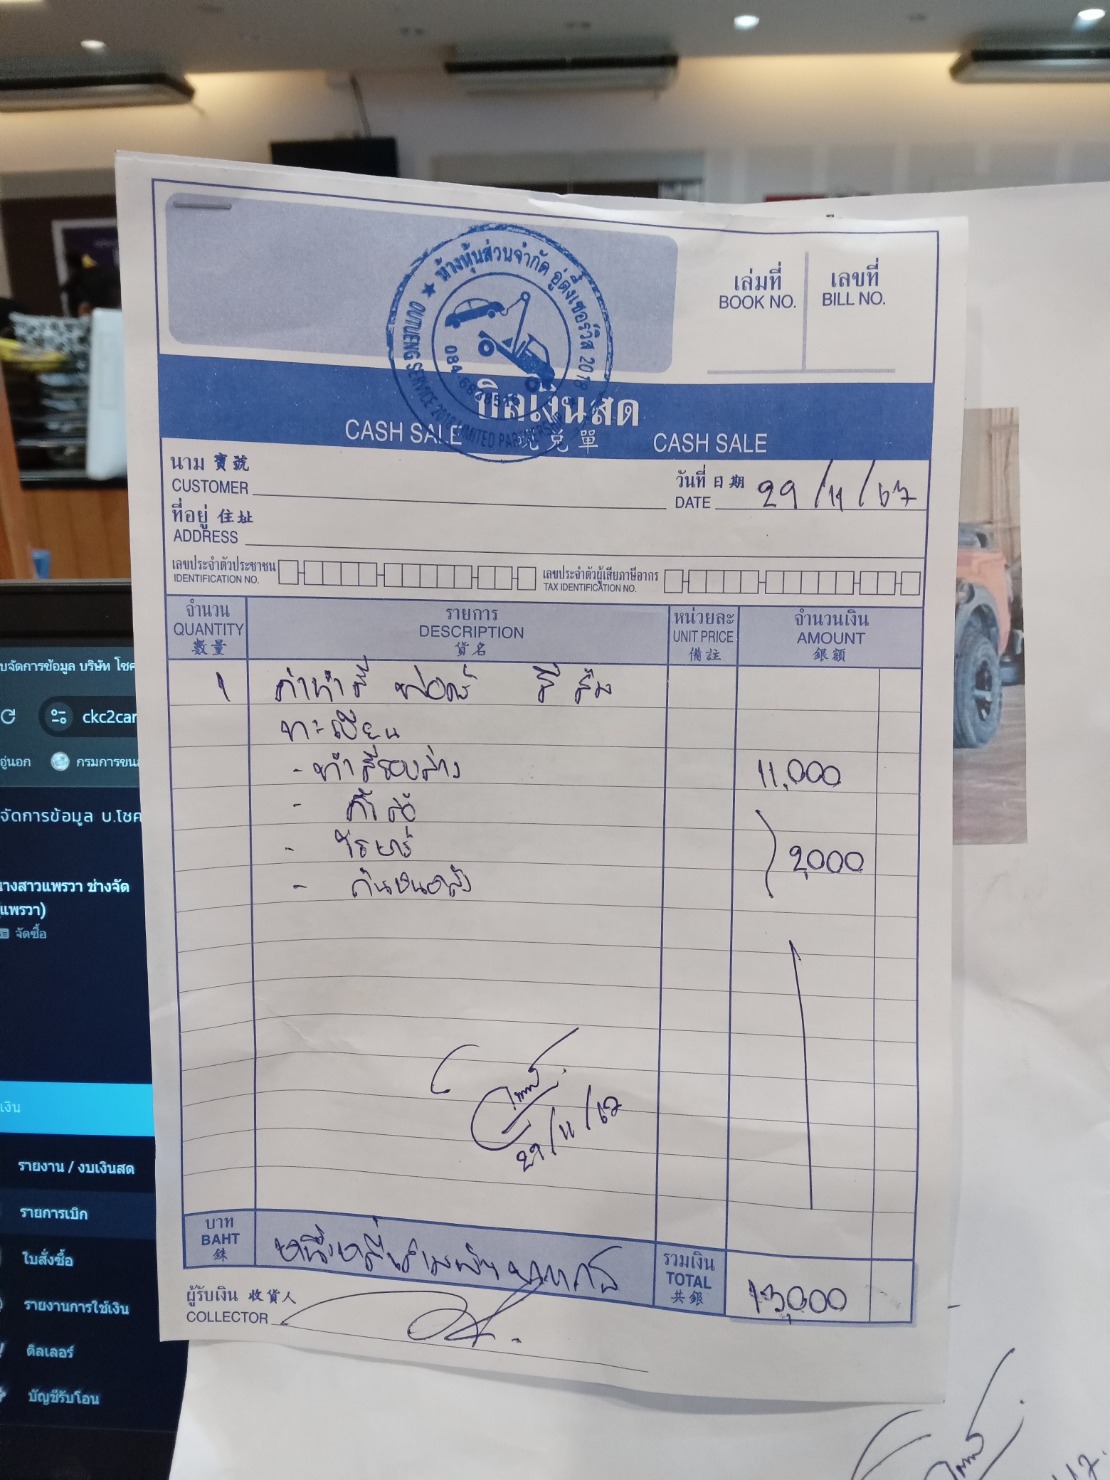 ห้างหุ้นส่วนจำกัด อู่ตึ๋งเซอร์วิส 2018
SERVICE 2018 LIMITED PARTNERSHIP
เล่มที่
BOOK NO.
เลขที่
BILL NO.
บิลเงินสด
CASH SALE 現兌單 CASH SALE
นาม 寶號
CUSTOMER
วันที่ 日期
DATE 29/11/67
ที่อยู่ 住址
ADDRESS
เลขประจำตัวประชาชน
IDENTIFICATION NO.
เลขประจำตัวผู้เสียภาษีอากร
TAX IDENTIFICATION NO.
จำนวน
QUANTITY
數量
รายการ
DESCRIPTION
貨名
หน่วยละ
UNIT PRICE
備註
จำนวนเงิน
AMOUNT
銀額
1 ค่าทำสี ฟอร์ด
ทะเบียน
- ทำสีรอบคัน 11,000
-
- 2,000
- กันชนหลัง
29/11/67
บาท
BAHT
銖
หนึ่งหมื่นสามพันบาทถ้วน
รวมเงิน
TOTAL
共銀
13,000
ผู้รับเงิน 收貨人
COLLECTOR
บจัดการข้อมูล บริษัท โชค
ckc2car
กรมการขน
จัดการข้อมูล บ.โชค
างสาวแพรวา ช่างจัด
แพรวา)
จัดซื้อ
เงิน
รายงาน / งบเงินสด
รายการเบิก
ใบสั่งซื้อ
รายงานการใช้เงิน
ดิลเลอร์
บัญชีรับโอน